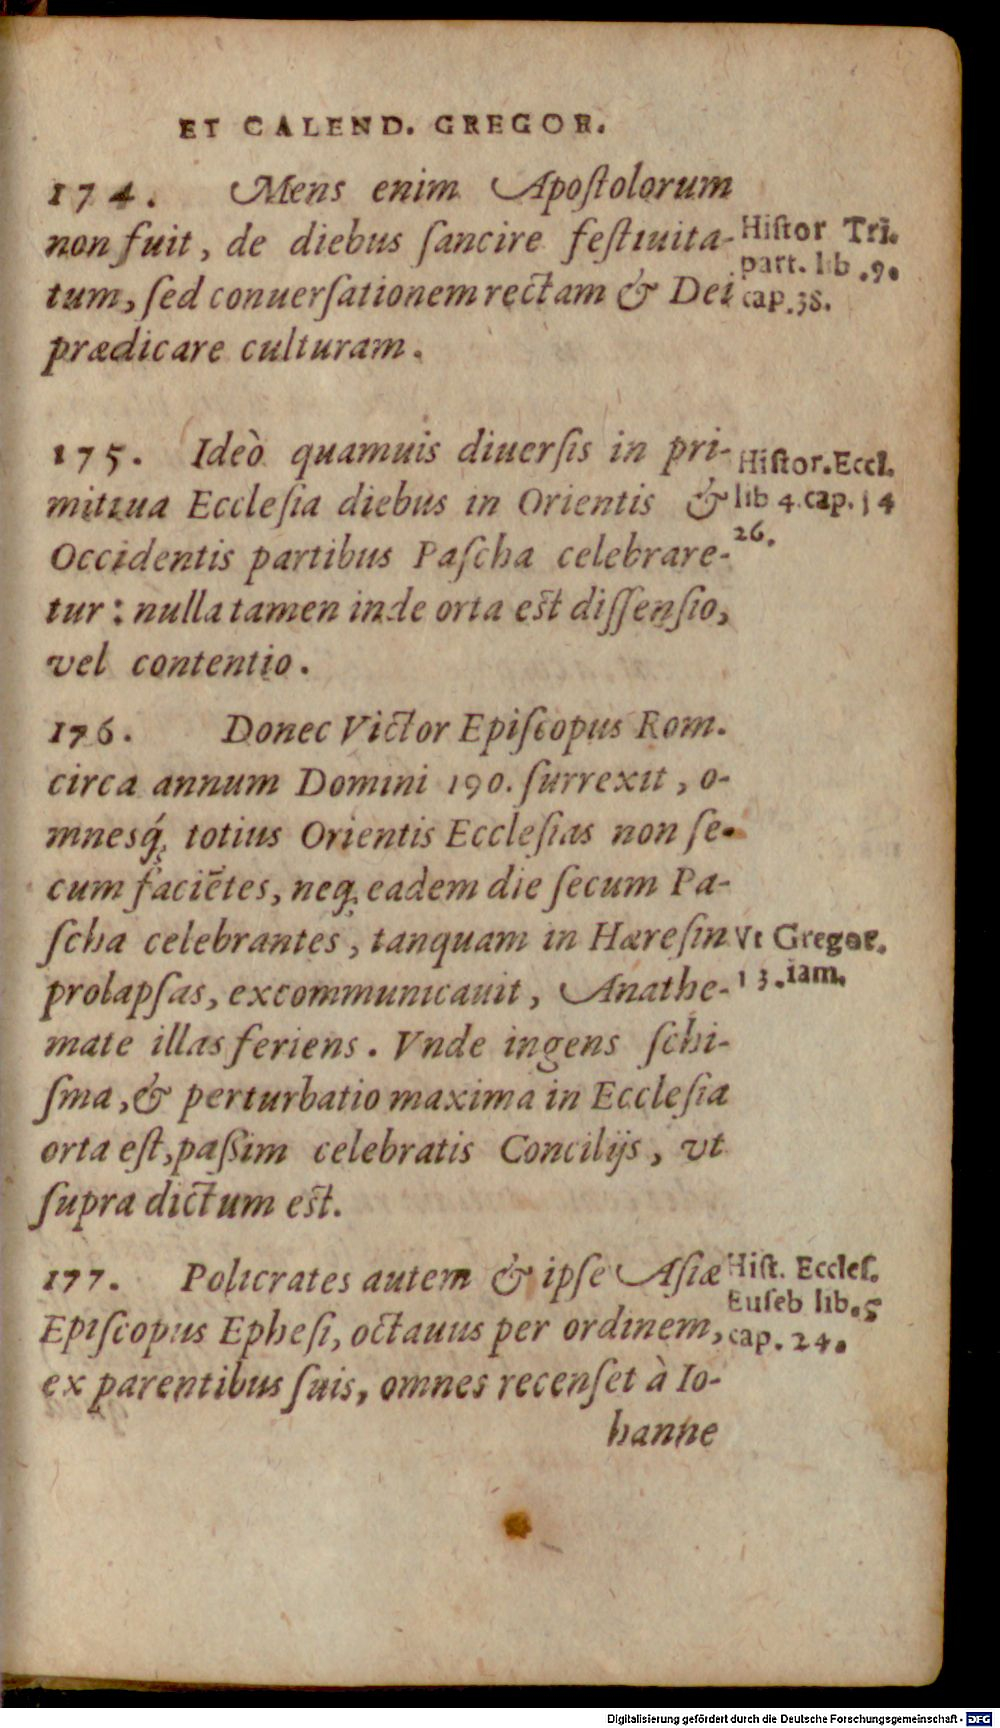 ET CALEND. GREGOR.
174. Mens enim Apoſtolorum
non fuit, de diebus ſancire feſtiuita-
tum, ſed conuerſationem rectam & Dei
prædicare culturam.
Hiſtor Tri.
part. lib.9.
cap.38.
175. Ideò quamuis diuerſis in pri-
mitiua Eccleſia diebus in Orientis &
Occidentis partibus Paſcha celebrare-
tur: nulla tamen inde orta eſt diſſenſio,
vel contentio.
Hiſtor.Eccl.
lib 4.cap.14
26.
176. Donec Victor Epiſcopus Rom.
circa annum Domini 190. ſurrexit, o-
mnesq́; totius Orientis Eccleſias non ſe-
cum faciẽtes, neq; eadem die ſecum Pa-
ſcha celebrantes, tanquam in Hæreſin
prolapſas, excommunicauit, Anathe-
mate illas feriens. Vnde ingens ſchi-
ſma, & perturbatio maxima in Eccleſia
orta eſt, paßim celebratis Concilijs, vt
ſupra dictum eſt.
Vt Gregor.
13.iam.
177. Policrates autem & ipſe Aſiæ
Epiſcopus Epheſi, octauus per ordinem,
ex parentibus ſuis, omnes recenſet à Io-
hanne
Hiſt. Eccleſ.
Euſeb lib.5
cap. 24.
Digitalisierung gefördert durch die Deutsche Forschungsgemeinschaft - DFG